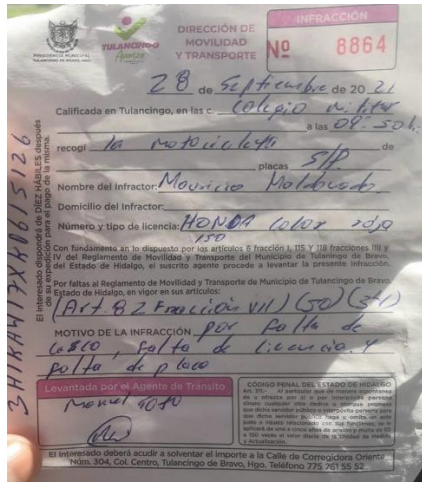 PRESIDENCIA MUNICIPAL
TULANCINGO
Avanza
DIRECCIÓN DE
MOVILIDAD
Y TRANSPORTE
INFRACCIÓN
Nº 8864
28 de Septiembre de 2021
Calificada en Tulancingo, en las c. Colegio Militar
a las 09:50 h.
recogí la motocicleta de
placas S/P.
Nombre del Infractor: Mauricio Maldonado
Domicilio del Infractor:
Número y tipo de licencia: HONDA color rojo
150
Con fundamento en lo dispuesto por los artículos 6 fracción I, 115 Y 118 fracciones III y
IV del Reglamento de Movilidad y Transporte del Municipio de Tulancingo de Bravo,
del Estado de Hidalgo, el suscrito agente procede a levantar la presente infracción.
Por faltas al Reglamento de Movilidad y Transporte de Municipio de Tulancingo de Bravo
Estado de Hidalgo, en vigor en sus artículos:
(Art. 82 Fracción VII) (50)
MOTIVO DE LA INFRACCIÓN por falta de
casco, falta de licencia y
falta de placa
Levantada por el Agente de Tránsito
Manuel
CÓDIGO PENAL DEL ESTADO DE HIDALGO
El Interesado deberá acudir a solventar el importe a la Calle de Corregidora Oriente
Núm. 304, Col. Centro, Tulancingo de Bravo, Hgo. Teléfono 775 761 55 52
El interesado dispondrá de DIEZ HÁBILES después
de su expedición para el pago de la misma.